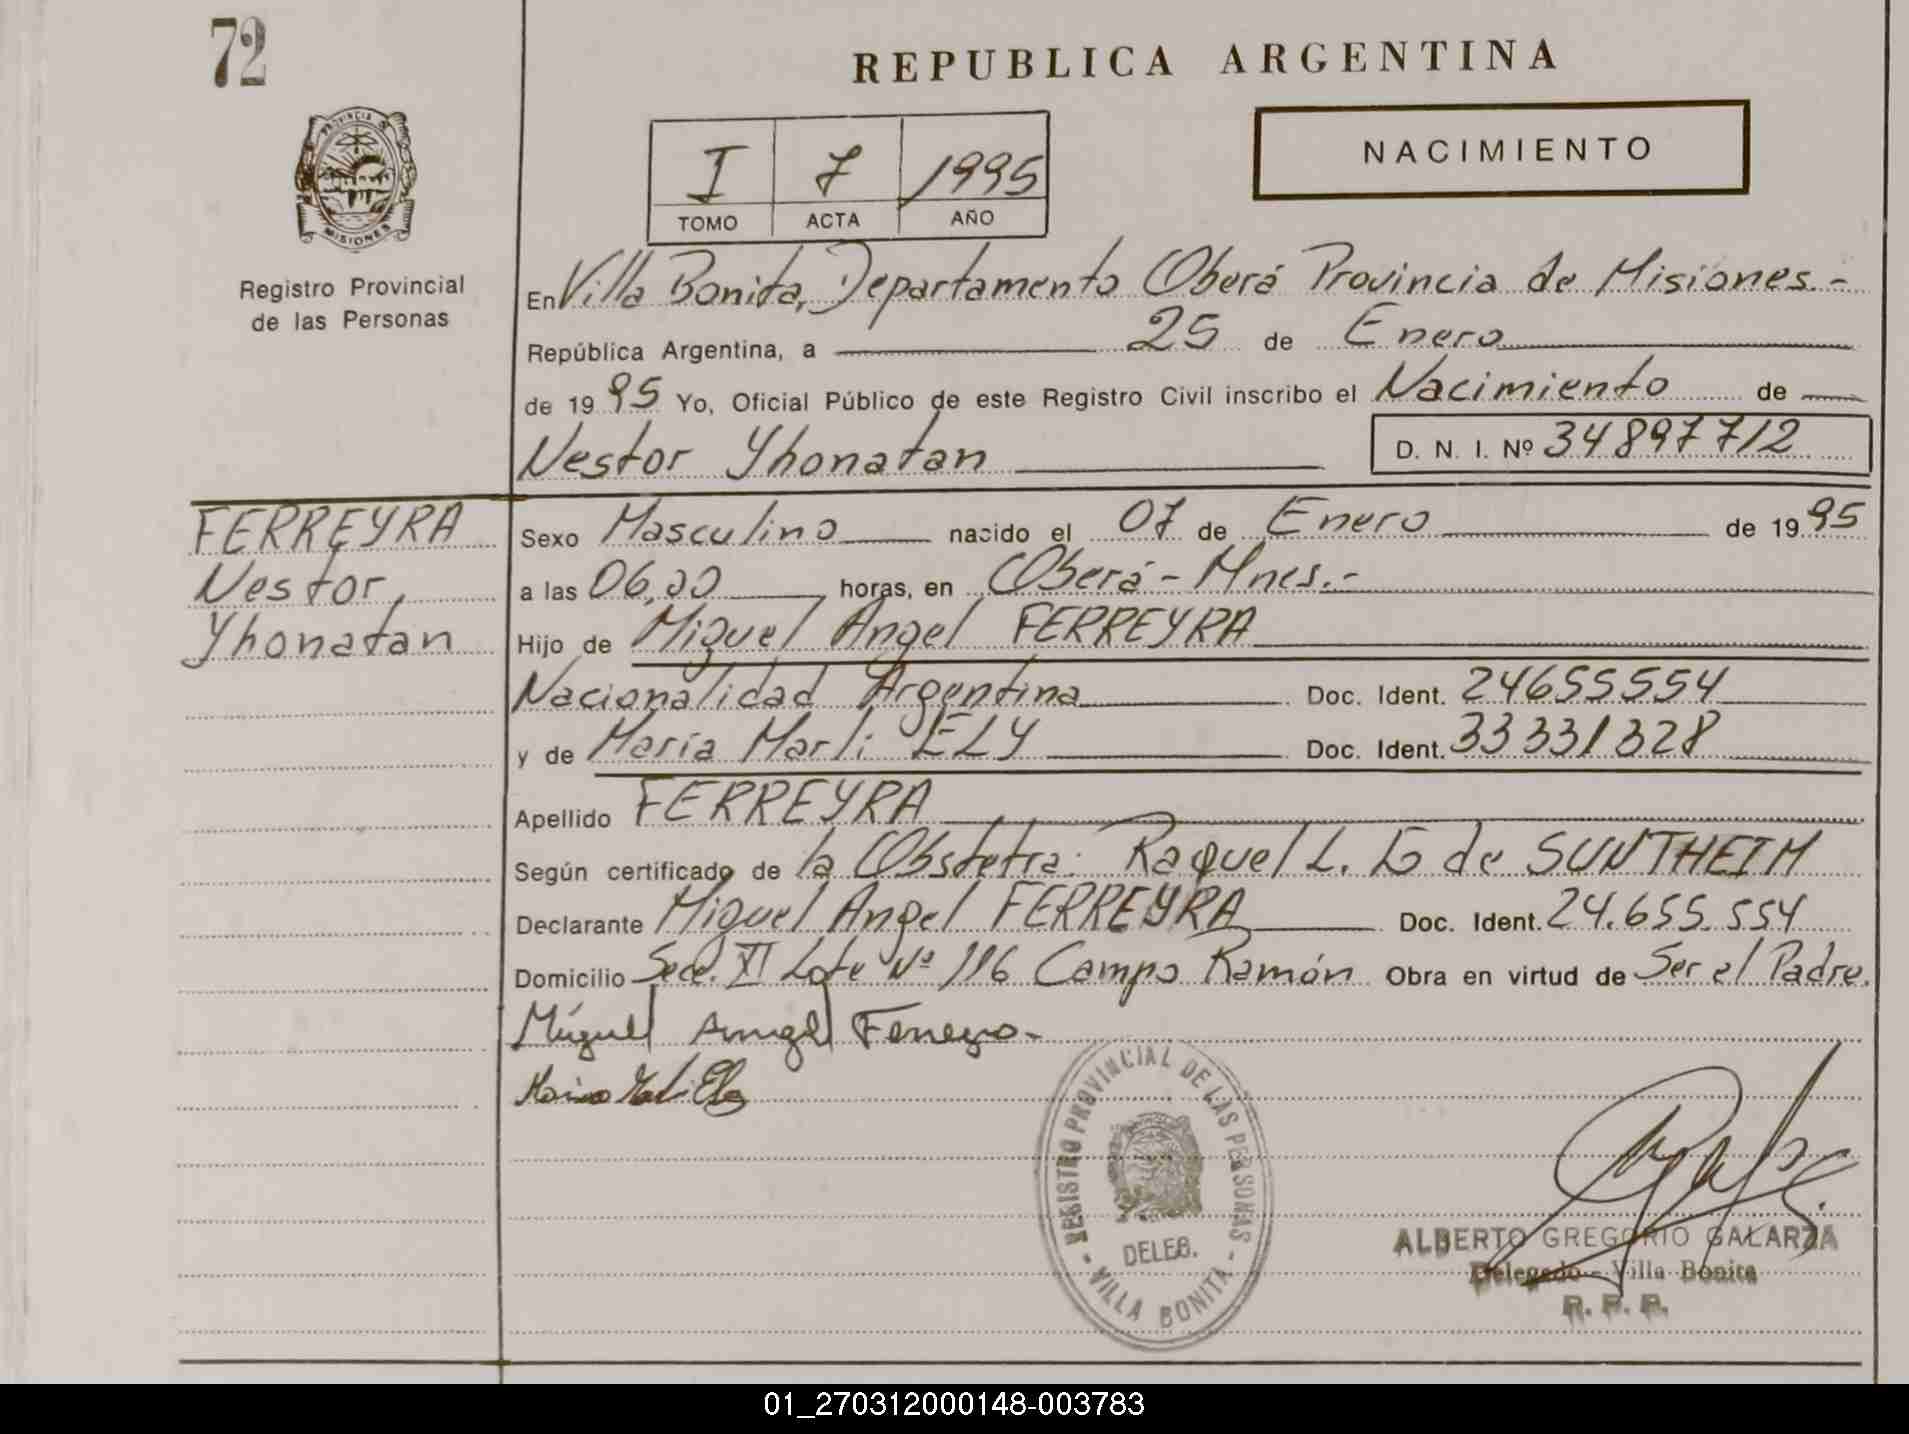 72
REPUBLICA ARGENTINA
PROVINCIA DE
MISIONES
Registro Provincial
de las Personas
I 7 1995
TOMO ACTA AÑO
NACIMIENTO
En Villa Bonita, Departamento Oberá Provincia de Misiones.-
República Argentina, a 25 de Enero
de 1995 Yo, Oficial Público de este Registro Civil inscribo el Nacimiento de
Nestor Yhonatan D. N. I. Nº 34897712
FERREYRA
Nestor,
Yhonatan
Sexo Masculino nacido el 07 de Enero de 1995
a las 06,00 horas, en Oberá - Mnes.-
Hijo de Miguel Angel FERREYRA
Nacionalidad Argentina Doc. Ident. 24655554
y de María Marli ELY Doc. Ident. 33331328
Apellido FERREYRA
Según certificado de la Obstetra: Raquel L. de SUNTHEIM
Declarante Miguel Angel FERREYRA Doc. Ident. 24.655.554
Domicilio Secc. XI Lote Nº 116 Campo Ramón Obra en virtud de Ser el Padre.
Miguel Angel Ferreyra-
REGISTRO PROVINCIAL DE LAS PERSONAS
DELEG.
- VILLA BONITA -
ALBERTO GREGORIO GALARZA
Delegado - Villa Bonita
R. P. P.
01_270312000148-003783